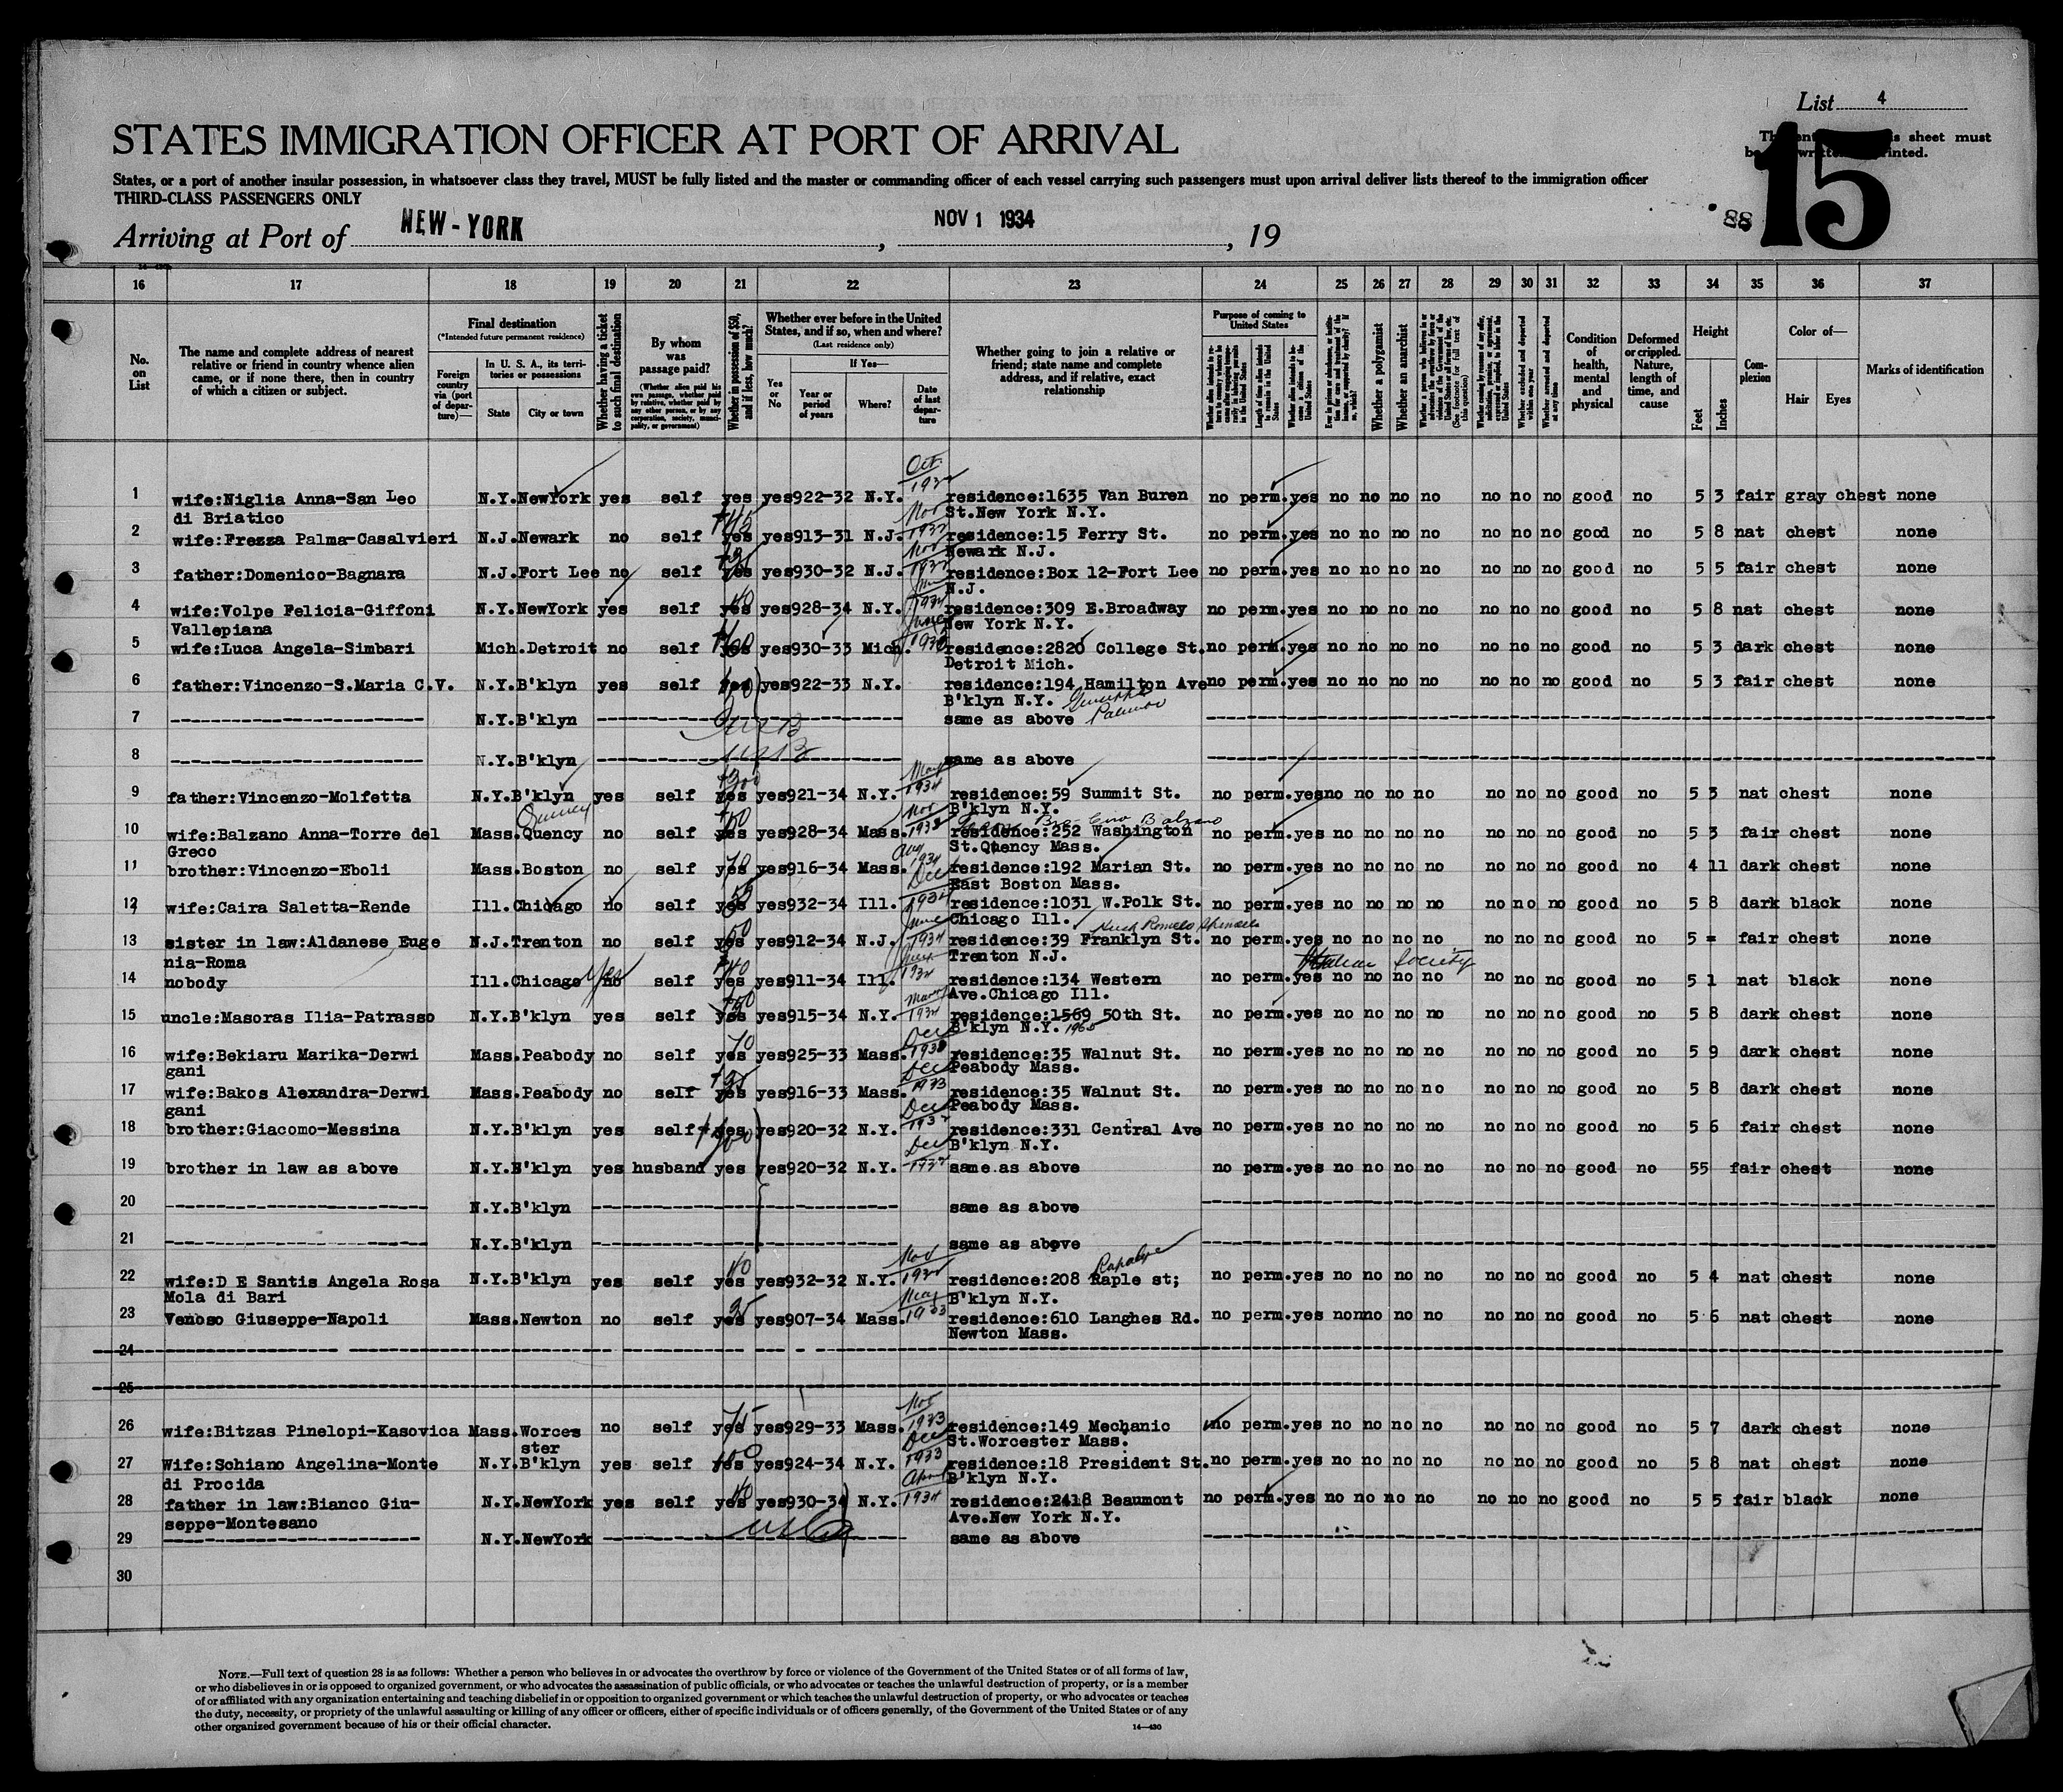 List 4
15
88
STATES IMMIGRATION OFFICER AT PORT OF ARRIVAL
States, or a port of another insular possession, in whatsoever class they travel, MUST be fully listed and the master or commanding officer of each vessel carrying such passengers must upon arrival deliver lists thereof to the immigration officer
THIRD-CLASS PASSENGERS ONLY
Arriving at Port of NEW-YORK, NOV 1 1934, 19
16 17 18 19 20 21 22 23 24 25 26 27 28 29 30 31 32 33 34 35 36 37
No. on List
The name and complete address of nearest relative or friend in country whence alien came, or if none there, then in country of which a citizen or subject.
Final destination
(*Intended future permanent residence)
Foreign country via (port of departure)—
In U. S. A., its territories or possessions
State
City or town
Whether having a ticket to such final destination
By whom was passage paid?
(Whether alien paid his own passage, whether paid by relative, whether paid by any other person, or by any corporation, society, municipality, or government)
Whether in possession of $50, and if less, how much?
Whether ever before in the United States, and if so, when and where?
(Last residence only)
Yes or No
If Yes—
Year or period of years
Where?
Date of last departure
Whether going to join a relative or friend; state name and complete address, and if relative, exact relationship
Purpose of coming to United States
Length of time alien intends to remain in the United States
Whether alien intends to become a citizen of the United States
Whether a polygamist
Whether an anarchist
Whether excluded and deported within one year
Whether arrested and deported at any time
Condition of health, mental and physical
Deformed or crippled. Nature, length of time, and cause
Height
Feet
Inches
Complexion
Color of—
Hair
Eyes
Marks of identification
1 wife:Niglia Anna-San Leo N.Y.NewYork yes self yes yes922-32 N.Y. Oct residence:1635 Van Buren no perm.yes no no no no no no no good no 5 3 fair gray chest none
di Briatico St.New York N.Y.
2 wife:Frezza Palma-Casalvieri N.J.Newark no self yes yes913-31 N.J. Nov residence:15 Ferry St. no perm.yes no no no no no no no good no 5 8 nat chest none
Newark N.J.
3 father:Domenico-Bagnara N.J.Fort Lee no self yes yes930-32 N.J. Nov 1932 residence:Box 12-Fort Lee no perm.yes no no no no no no no good no 5 5 fair chest none
N.J.
4 wife:Volpe Felicia-Giffoni N.Y.NewYork yes self yes yes928-34 N.Y. 1934 residence:309 E.Broadway no perm.yes no no no no no no no good no 5 8 nat chest none
Vallepiana New York N.Y.
5 wife:Luca Angela-Simbari Mich.Detroit no self yes yes930-33 Mich. June residence:2820 College St. no perm.yes no no no no no no no good no 5 3 dark chest none
Detroit Mich.
6 father:Vincenzo-S.Maria C.V. N.Y.B'klyn yes self yes yes922-33 N.Y. residence:194 Hamilton Ave no perm.yes no no no no no no no good no 5 3 fair chest none
B'klyn N.Y.
7 N.Y.B'klyn same as above
8 N.Y.B'klyn USB same as above
9 father:Vincenzo-Molfetta N.Y.B'klyn yes self yes yes921-34 N.Y. May 1934 residence:59 Summit St. no perm.yesno no no no no no no good no 5 3 nat chest none
B'klyn N.Y.
Quincy Bro Ciro Balzano
10 wife:Balzano Anna-Torre del Mass.Quency no self yes yes928-34 Mass. Nov residence:252 Washington no perm.yes no no no no no no no good no 5 3 fair chest none
Greco St.Quency Mass.
11 brother:Vincenzo-Eboli Mass.Boston no self yes yes916-34 Mass. Aug 1934 residence:192 Marian St. no perm.yes no no no no no no no good no 4 11 dark chest none
East Boston Mass.
12 wife:Caira Saletta-Rende Ill.Chicago no self yes yes932-34 Ill. Dec residence:1031 W.Polk St. no perm.yes no no no no no no no good no 5 8 dark black none
Chicago Ill.
13 sister in law:Aldanese Euge N.J.Trenton no self yes yes912-34 N.J. June 1934 residence:39 Franklyn St. no perm.yes no no no no no no no good no 5 = fair chest none
nia-Roma Trenton N.J. Italian Society
14 nobody Ill.Chicago no yes self yes yes911-34 Ill. residence:134 Western no perm.yes no no no no no no no good no 5 1 nat black none
Ave.Chicago Ill.
15 uncle:Masoras Ilia-Patrasso N.Y.B'klyn yes self yes yes915-34 N.Y. 1934 residence:1569 50th St. no perm.yes no no no no no no no good no 5 8 dark chest none
B'klyn N.Y.
16 wife:Bekiaru Marika-Derwi Mass.Peabody no self yes yes925-33 Mass. Dec residence:35 Walnut St. no perm.yes no no no no no no no good no 5 9 dark chest none
gani Peabody Mass.
17 wife:Bakos Alexandra-Derwi Mass.Peabody no self yes yes916-33 Mass. Dec 1933 residence:35 Walnut St. no perm.yes no no no no no no no good no 5 8 dark chest none
gani Peabody Mass.
18 brother:Giacomo-Messina N.Y.B'klyn yes self yes yes920-32 N.Y. Dec 1932 residence:331 Central Ave no perm.yes no no no no no no no good no 5 6 fair chest none
B'klyn N.Y.
19 brother in law as above N.Y.B'klyn yes husband yes yes920-32 N.Y. Dec 1932 same as above no perm.yes no no no no no no no good no 55 fair chest none
20 N.Y.B'klyn same as above
21 N.Y.B'klyn same as above
22 wife:D E Santis Angela Rosa N.Y.B'klyn yes self yes yes932-32 N.Y. Nov residence:208 Raple st; no perm.yes no no no no no no no good no 5 4 nat chest none
Mola di Bari B'klyn N.Y.
23 Venoso Giuseppe-Napoli Mass.Newton no self yes yes907-34 Mass. May residence:610 Langhes Rd. no perm.yes nonno no no no no no good no 5 6 nat chest none
Newton Mass.
24
25
26 wife:Bitzas Pinelopi-Kasovica Mass.Worces no self yes 75 yes929-33 Mass. Nov 1933 residence:149 Mechanic no perm.yes no no no no no no no good no 5 7 dark chest none
ster St.Worcester Mass.
27 Wife:Schiano Angelina-Monte N.Y.B'klyn yes self yes 100 yes924-34 N.Y. Dec 1933 residence:18 President St. no perm.yes no no no no no no no good no 5 8 nat chest none
di Procida B'klyn N.Y.
28 father in law:Bianco Giu- N.Y.NewYork yes self yes 40 yes930-34 N.Y. April 1934 residence:2418 Beaumont no perm.yes no no no no no no no good no 5 5 fair black none
seppe-Montesano Ave.New York N.Y.
29 N.Y.NewYork same as above
30
NOTE.—Full text of question 28 is as follows: Whether a person who believes in or advocates the overthrow by force or violence of the Government of the United States or of all forms of law,
or who disbelieves in or is opposed to organized government, or who advocates the assassination of public officials, or who advocates or teaches the unlawful destruction of property, or is a member
of or affiliated with any organization entertaining and teaching disbelief in or opposition to organized government or which teaches the unlawful destruction of property, or who advocates or teaches
the duty, necessity, or propriety of the unlawful assaulting or killing of any officer or officers, either of specific individuals or of officers generally, of the Government of the United States or of any
other organized government because of his or their official character.
14—430